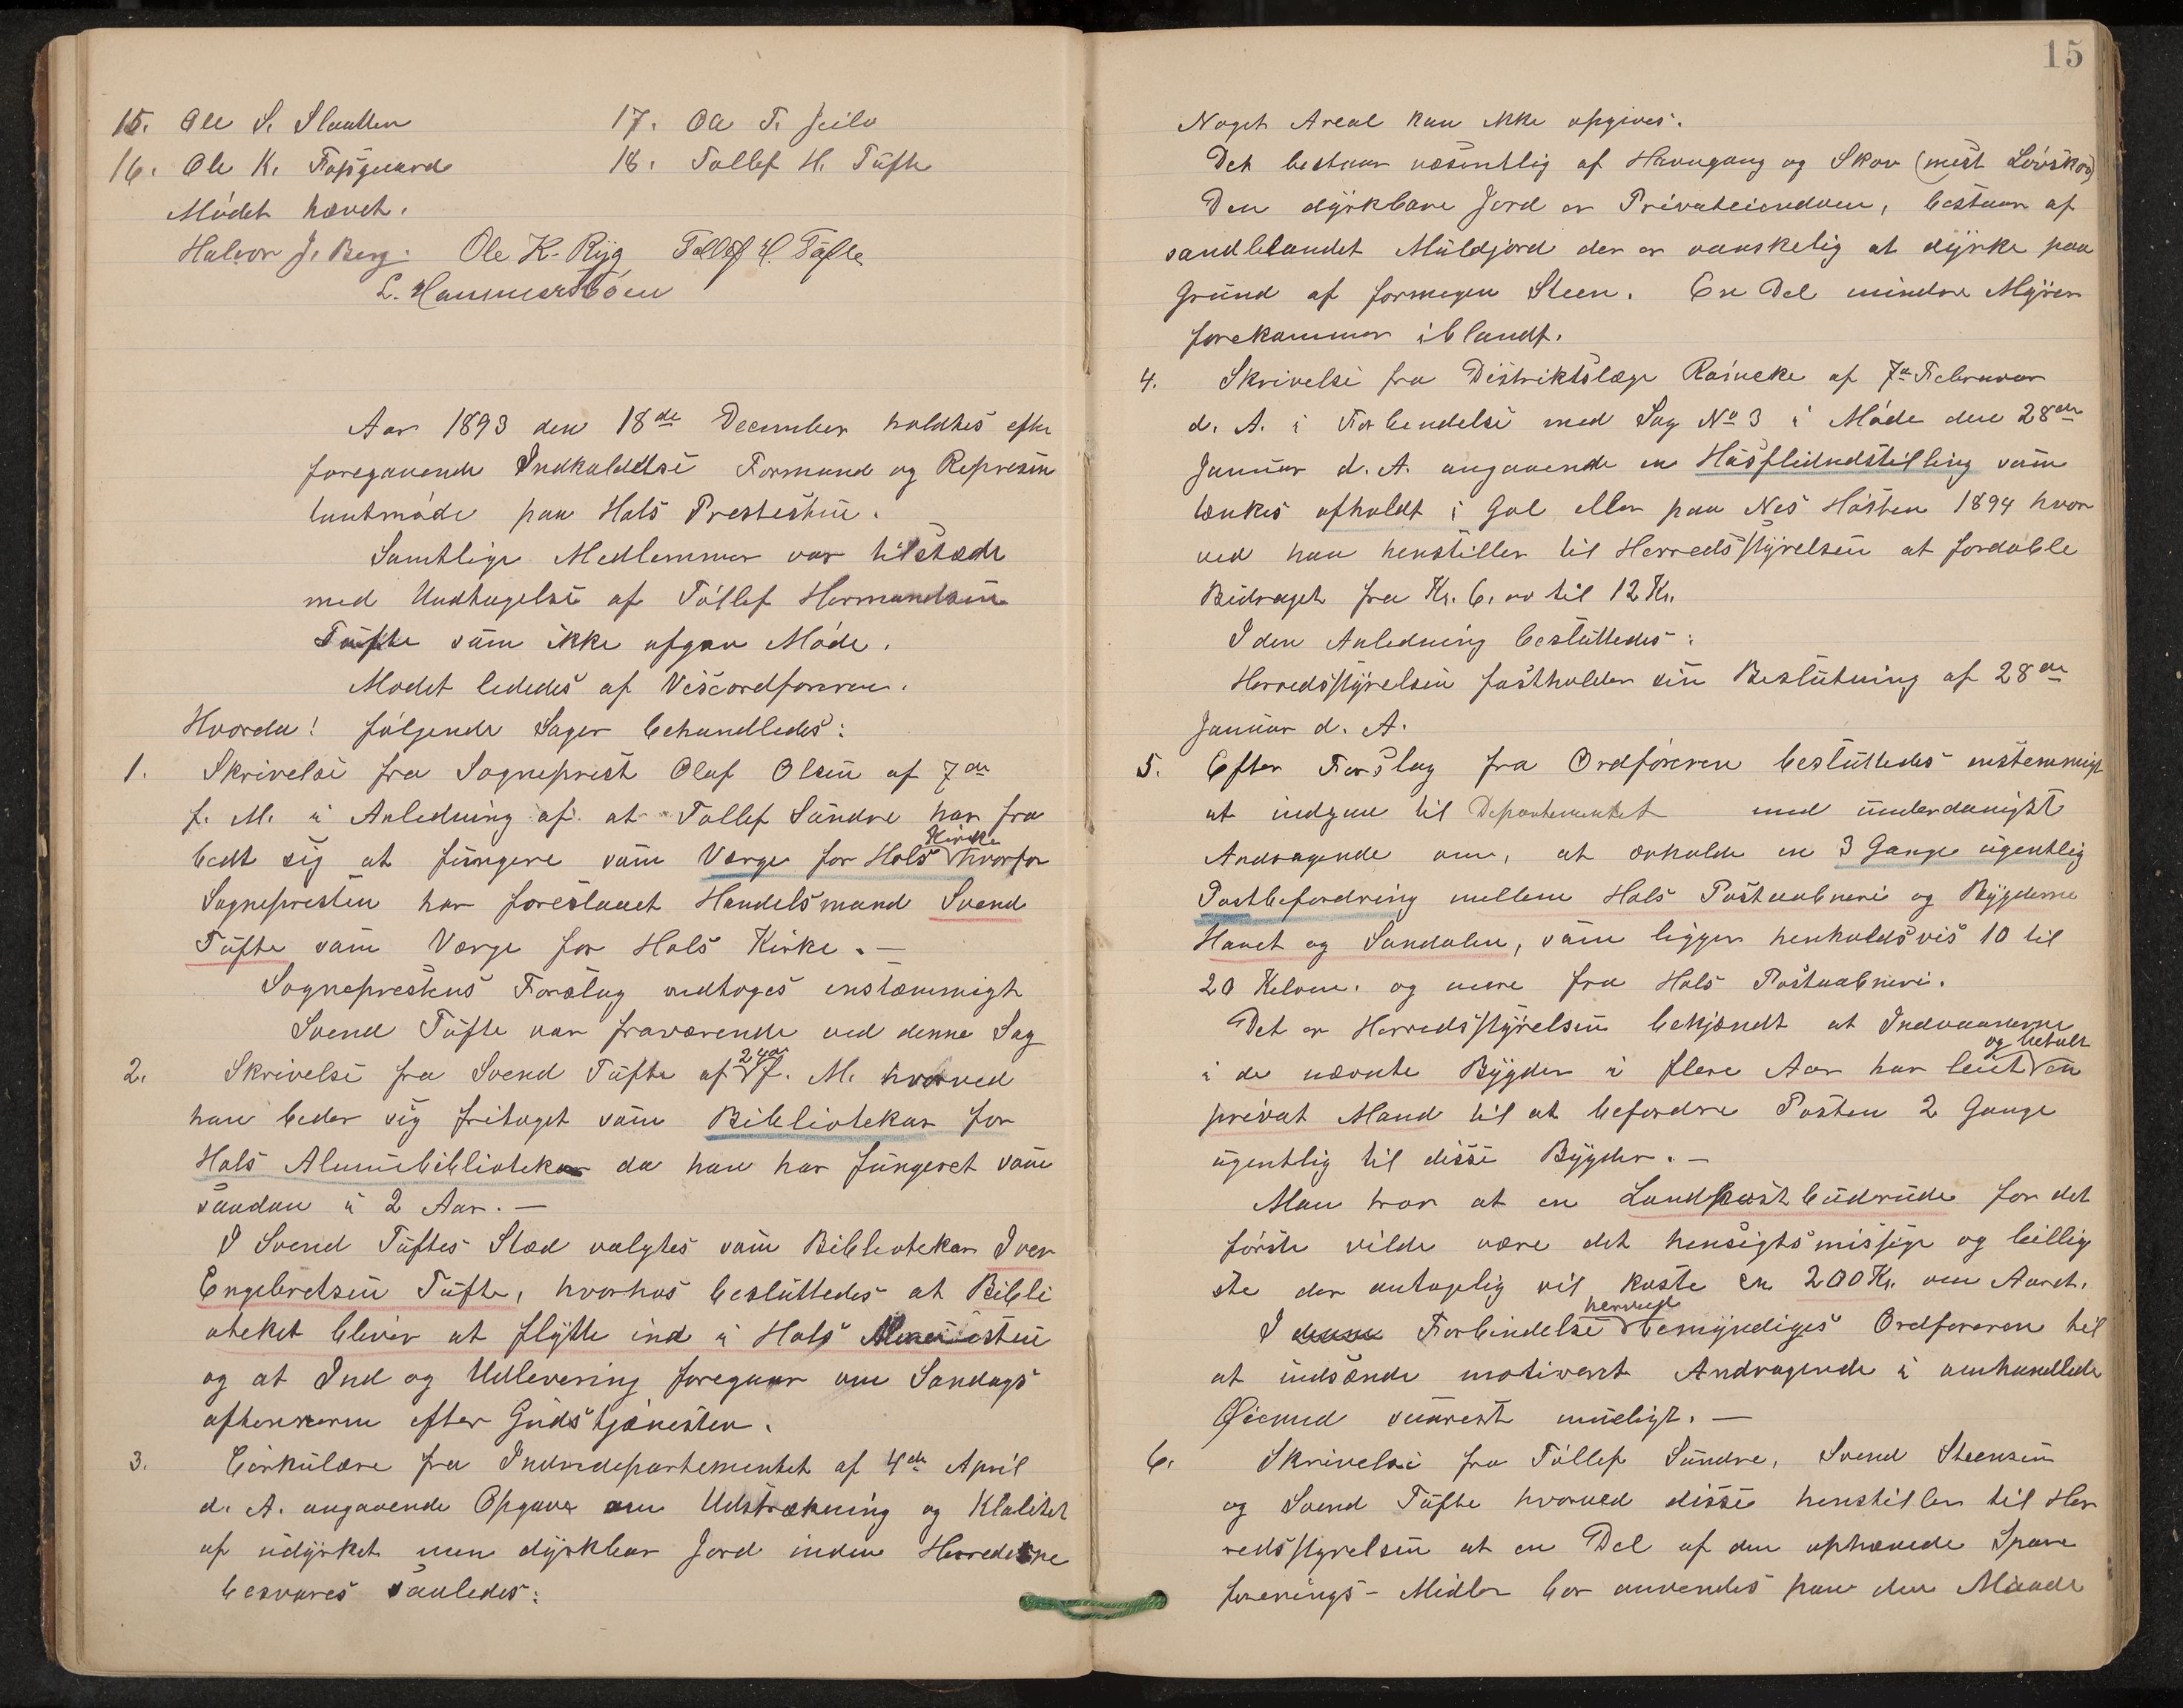 15. Ole S. Slaatten
16. Ole K. Fosgaard
17. Ola T. Geilo
18. Tollef H. Tufte
Mödet hævet.
Halvor J. Berg. Ole K. Ryg Tollef H. Tufte
L. Hammersböen
Aar 1893 den 18de December holdtes efter
foregaaende Indkaldelse Formand og Represen
tantmöde paa Hols Prestestue.
Samtlige Medlemmer var tilstæde
med Undtagelse af Tollef Hermandsen
Tufte som ikke afgav Möde.
Mödet lededes af Viseordföreren.
Hvorda! fölgende Sager behandledes:
1. Skrivelse fra Sogneprest Oluf Olsen af 7de
f. M. i Anledning af at Tollef Sundre har fra
bedt sig at fungere som Værge for Hols Kirke hvorfor
Sognepresten har foreslaaet Handelsmand Svend
Tufte som Værge for Hols Kirke. —
Sogneprestens Forslag vedtoges enstæmmigt
Svend Tufte var fraværende ved denne Sag
2. Skrivelse fra Svend Tufte af 24de f. M. hvorved
han beder sig fritaget som Bibliotekar for
Hols Almuebibliotekar da han har fungeret som
saadan i 2 Aar. —
I Svend Tuftes Stæd valgtes som Bibliotekar Iver
Engebretsen Tufte, hvorhos besluttedes at Bibli
oteket bliver at flytte ind i Hols Almuestue
og at Ind og Udlevering foregaar om Söndags
aftenerne efter Gudstjenesten.
3. Cirkulære fra Indredepartementet af 4de April
d. A. angaaende Opgave om Udstrækning og Kvalitet
af udyrket men dyrkbar Jord inden Herrederne
besvares saaledes:
15
Noget Areal kan ikke opgives.
Det bestaar væsentlig af Havnegang og Skov (mest Lövskov)
Den dyrkbare Jord er Privateiendom, bestaar af
sandblandet Muldjord der er vanskelig at dyrke paa
Grund af formegen Steen. En Del mindre Myrer
forekommer iblandt.
4. Skrivelse fra Distriktslæge Reincke af 7de Februar
d. A. i Forbindelse med Sag No 3 i Möde den 28de
Januar d. A. angaaende en Husflidudstilling som
tænkes afholdt i Gol eller paa Nes Hösten 1894 hvor
ved han henstiller til Herredsstyrelsen at fordoble
Bidraget fra Kr. 6.00 til 12 Kr.
I den Anledning besluttedes:
Herredsstyrelsen fastholder sin Beslutning af 28de
Januar d. A.
5. Efter Forslag fra Ordföreren besluttedes enstemmigt
at indgaa til Departementet med underdanigst
Andragende om, at erholde en 3 Gange ugentlig
Postbefordring mellem Hols Postaabneri og Bygderne
Hovet og Sundalen, som ligger henholdsvis 10 til
20 Kilom. og mere fra Hols Postaabneri.
Det er Herredsstyrelsen bekjændt at Indvaanerne
i de nævnte Bygder i flere Aar har leiet og betalt en
privat Mand til at befordre Posten 2 Gange
ugentlig til disse Bygder. —
Man tror at en Landpostbudrude for det
förste vilde være det hensigtsmæssige og billig
ste der antagelig vil koste ca. 200 Kr. om Aaret.
I Forbindelse hermed bemyndiges Ordföreren til
at indsænde motiveret Andragende i omhandlede
Öiemed snarest muligt. —
6. Skrivelse fra Tollef Sundre, Svend Steensen
og Svend Tufte hvorved disse henstiller til Her
redsstyrelsen at en Del af den ophævede Spare
forenings-Midler bör anvendes paa den Maade